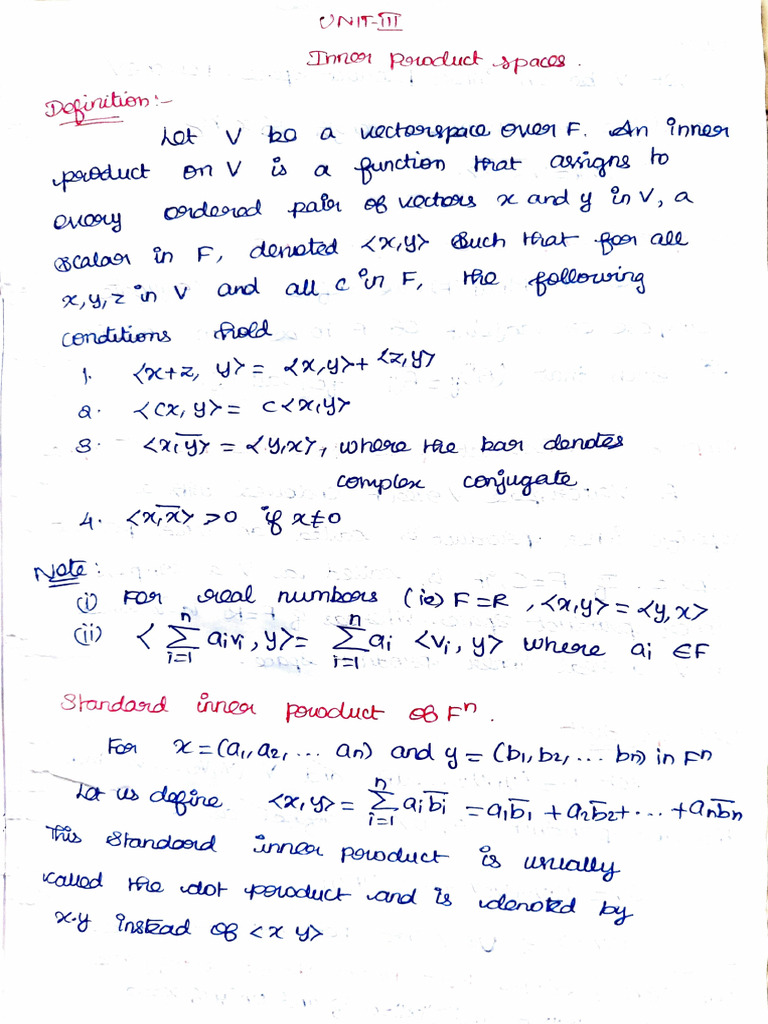 UNIT-III
Inner product spaces.
Definition:-
Let V be a vectorspace over F. An inner
product on V is a function that assigns to
every ordered pair of vectors x and y in V, a
scalar in F, denoted <x,y> such that for all
x,y,z in V and all c in F, the following
conditions hold
1. <x+z, y> = <x,y> + <z,y>
2. <cx, y> = c<x,y>
3. <x,y>̅ = <y,x>, where the bar denotes
complex conjugate.
4. <x,x>̅ >0 if x≠0
Note:
(i) For real numbers (ie) F=R, <x,y> = <y,x>
(ii) < ∑ⁿᵢ₌₁ aᵢvᵢ, y> = ∑ⁿᵢ₌₁ aᵢ <vᵢ, y> where aᵢ ∈F
Standard inner product of Fⁿ.
For x = (a₁, a₂, ... aₙ) and y = (b₁, b₂, ... bₙ) in Fⁿ
Let us define <x,y> = ∑ⁿᵢ₌₁ aᵢb̅ᵢ = a₁b̅₁ + a₂b̅₂ + ... + aₙb̅ₙ
This standard inner product is usually
called the dot product and is denoted by
x.y instead of <x y>